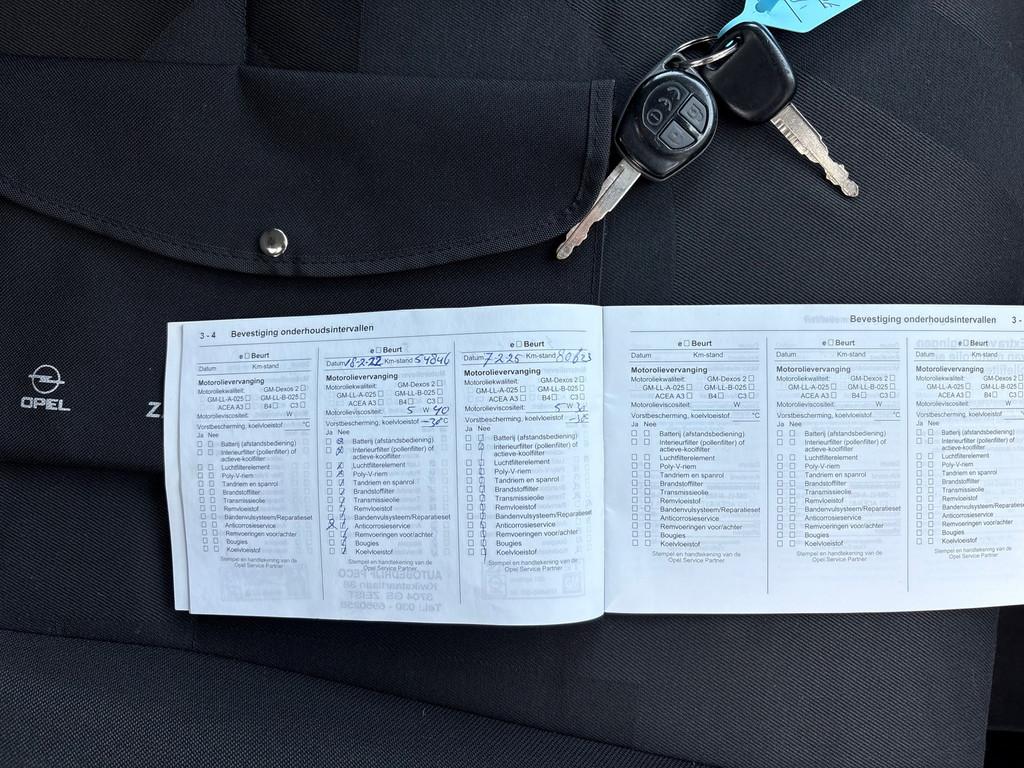 OPEL
3 - 4 Bevestiging onderhoudsintervallen
e □ Beurt
Datum Km-stand
Motorolievervanging
Motoroliekwaliteit: GM-Dexos 2 □
GM-LL-A-025 □ GM-LL-B-025 □
ACEA A3 □ B4 □ C3 □
Motorolieviscositeit: W
Vorstbescherming, koelvloeistof °C
Ja Nee
□ □ Batterij (afstandsbediening)
□ □ Interieurfilter (pollenfilter) of
actieve-koolfilter
□ □ Luchtfilterelement
□ □ Poly-V-riem
□ □ Tandriem en spanrol
□ □ Brandstoffilter
□ □ Transmissieolie
□ □ Remvloeistof
□ □ Bandenvulsysteem/Reparatieset
□ □ Anticorrosieservice
□ □ Remvoeringen voor/achter
□ □ Bougies
□ □ Koelvloeistof
Stempel en handtekening van de
Opel Service Partner
e □ Beurt
Datum 18-2-22 Km-stand 54846
Motorolievervanging
Motoroliekwaliteit: GM-Dexos 2 □
GM-LL-A-025 □ GM-LL-B-025 □
ACEA A3 □ B4 □ C3 □
Motorolieviscositeit: 5 W 40
Vorstbescherming, koelvloeistof -30°C
Ja Nee
Batterij (afstandsbediening)
Interieurfilter (pollenfilter) of
actieve-koolfilter
Luchtfilterelement
Poly-V-riem
Tandriem en spanrol
Brandstoffilter
Transmissieolie
Remvloeistof
Bandenvulsysteem/Reparatieset
Anticorrosieservice
Remvoeringen voor/achter
Bougies
Koelvloeistof
Stempel en handtekening van de
Opel Service Partner
AUTOBEDRIJF PECO
3704 GB ZEIST
Tel.: 030 - 6960258
e □ Beurt
Datum 7-2-25 Km-stand 80623
Motorolievervanging
Motoroliekwaliteit: GM-Dexos 2 □
GM-LL-A-025 □ GM-LL-B-025 □
ACEA A3 □ B4 □ C3 □
Motorolieviscositeit: 5 W 30
Vorstbescherming, koelvloeistof -30
Ja Nee
Batterij (afstandsbediening)
Interieurfilter (pollenfilter) of
actieve-koolfilter
Luchtfilterelement
Poly-V-riem
Tandriem en spanrol
Brandstoffilter
Transmissieolie
Remvloeistof
Bandenvulsysteem/Reparatieset
Anticorrosieservice
Remvoeringen voor/achter
Bougies
Koelvloeistof
Stempel en handtekening van de
Opel Service Partner
Bevestiging onderhoudsintervallen 3 -
e □ Beurt
Datum Km-stand
Motorolievervanging
Motoroliekwaliteit: GM-Dexos 2 □
GM-LL-A-025 □ GM-LL-B-025 □
ACEA A3 □ B4 □ C3 □
Motorolieviscositeit: W
Vorstbescherming, koelvloeistof °C
Ja Nee
□ □ Batterij (afstandsbediening)
□ □ Interieurfilter (pollenfilter) of
actieve-koolfilter
□ □ Luchtfilterelement
□ □ Poly-V-riem
□ □ Tandriem en spanrol
□ □ Brandstoffilter
□ □ Transmissieolie
□ □ Remvloeistof
□ □ Bandenvulsysteem/Reparatieset
□ □ Anticorrosieservice
□ □ Remvoeringen voor/achter
□ □ Bougies
□ □ Koelvloeistof
Stempel en handtekening van de
Opel Service Partner
e □ Beurt
Datum Km-stand
Motorolievervanging
Motoroliekwaliteit: GM-Dexos 2 □
GM-LL-A-025 □ GM-LL-B-025 □
ACEA A3 □ B4 □ C3 □
Motorolieviscositeit: W
Vorstbescherming, koelvloeistof °C
Ja Nee
□ □ Batterij (afstandsbediening)
□ □ Interieurfilter (pollenfilter) of
actieve-koolfilter
□ □ Luchtfilterelement
□ □ Poly-V-riem
□ □ Tandriem en spanrol
□ □ Brandstoffilter
□ □ Transmissieolie
□ □ Remvloeistof
□ □ Bandenvulsysteem/Reparatieset
□ □ Anticorrosieservice
□ □ Remvoeringen voor/achter
□ □ Bougies
□ □ Koelvloeistof
Stempel en handtekening van de
Opel Service Partner
e □ Beurt
Datum Km-stand
Motorolievervanging
Motoroliekwaliteit: GM-Dexos 2 □
GM-LL-A-025 □ GM-LL-B-025 □
ACEA A3 □ B4 □ C3 □
Motorolieviscositeit: W
Vorstbescherming, koelvloeistof
Ja Nee
□ □ Batterij (afstandsbediening)
□ □ Interieurfilter (pollenfilter) of
actieve-koolfilter
□ □ Luchtfilterelement
□ □ Poly-V-riem
□ □ Tandriem en spanrol
□ □ Brandstoffilter
□ □ Transmissieolie
□ □ Remvloeistof
□ □ Bandenvulsysteem/Reparaties
□ □ Anticorrosieservice
□ □ Remvoeringen voor/achter
□ □ Bougies
□ □ Koelvloeistof
Stempel en handtekening van de
Opel Service Partner